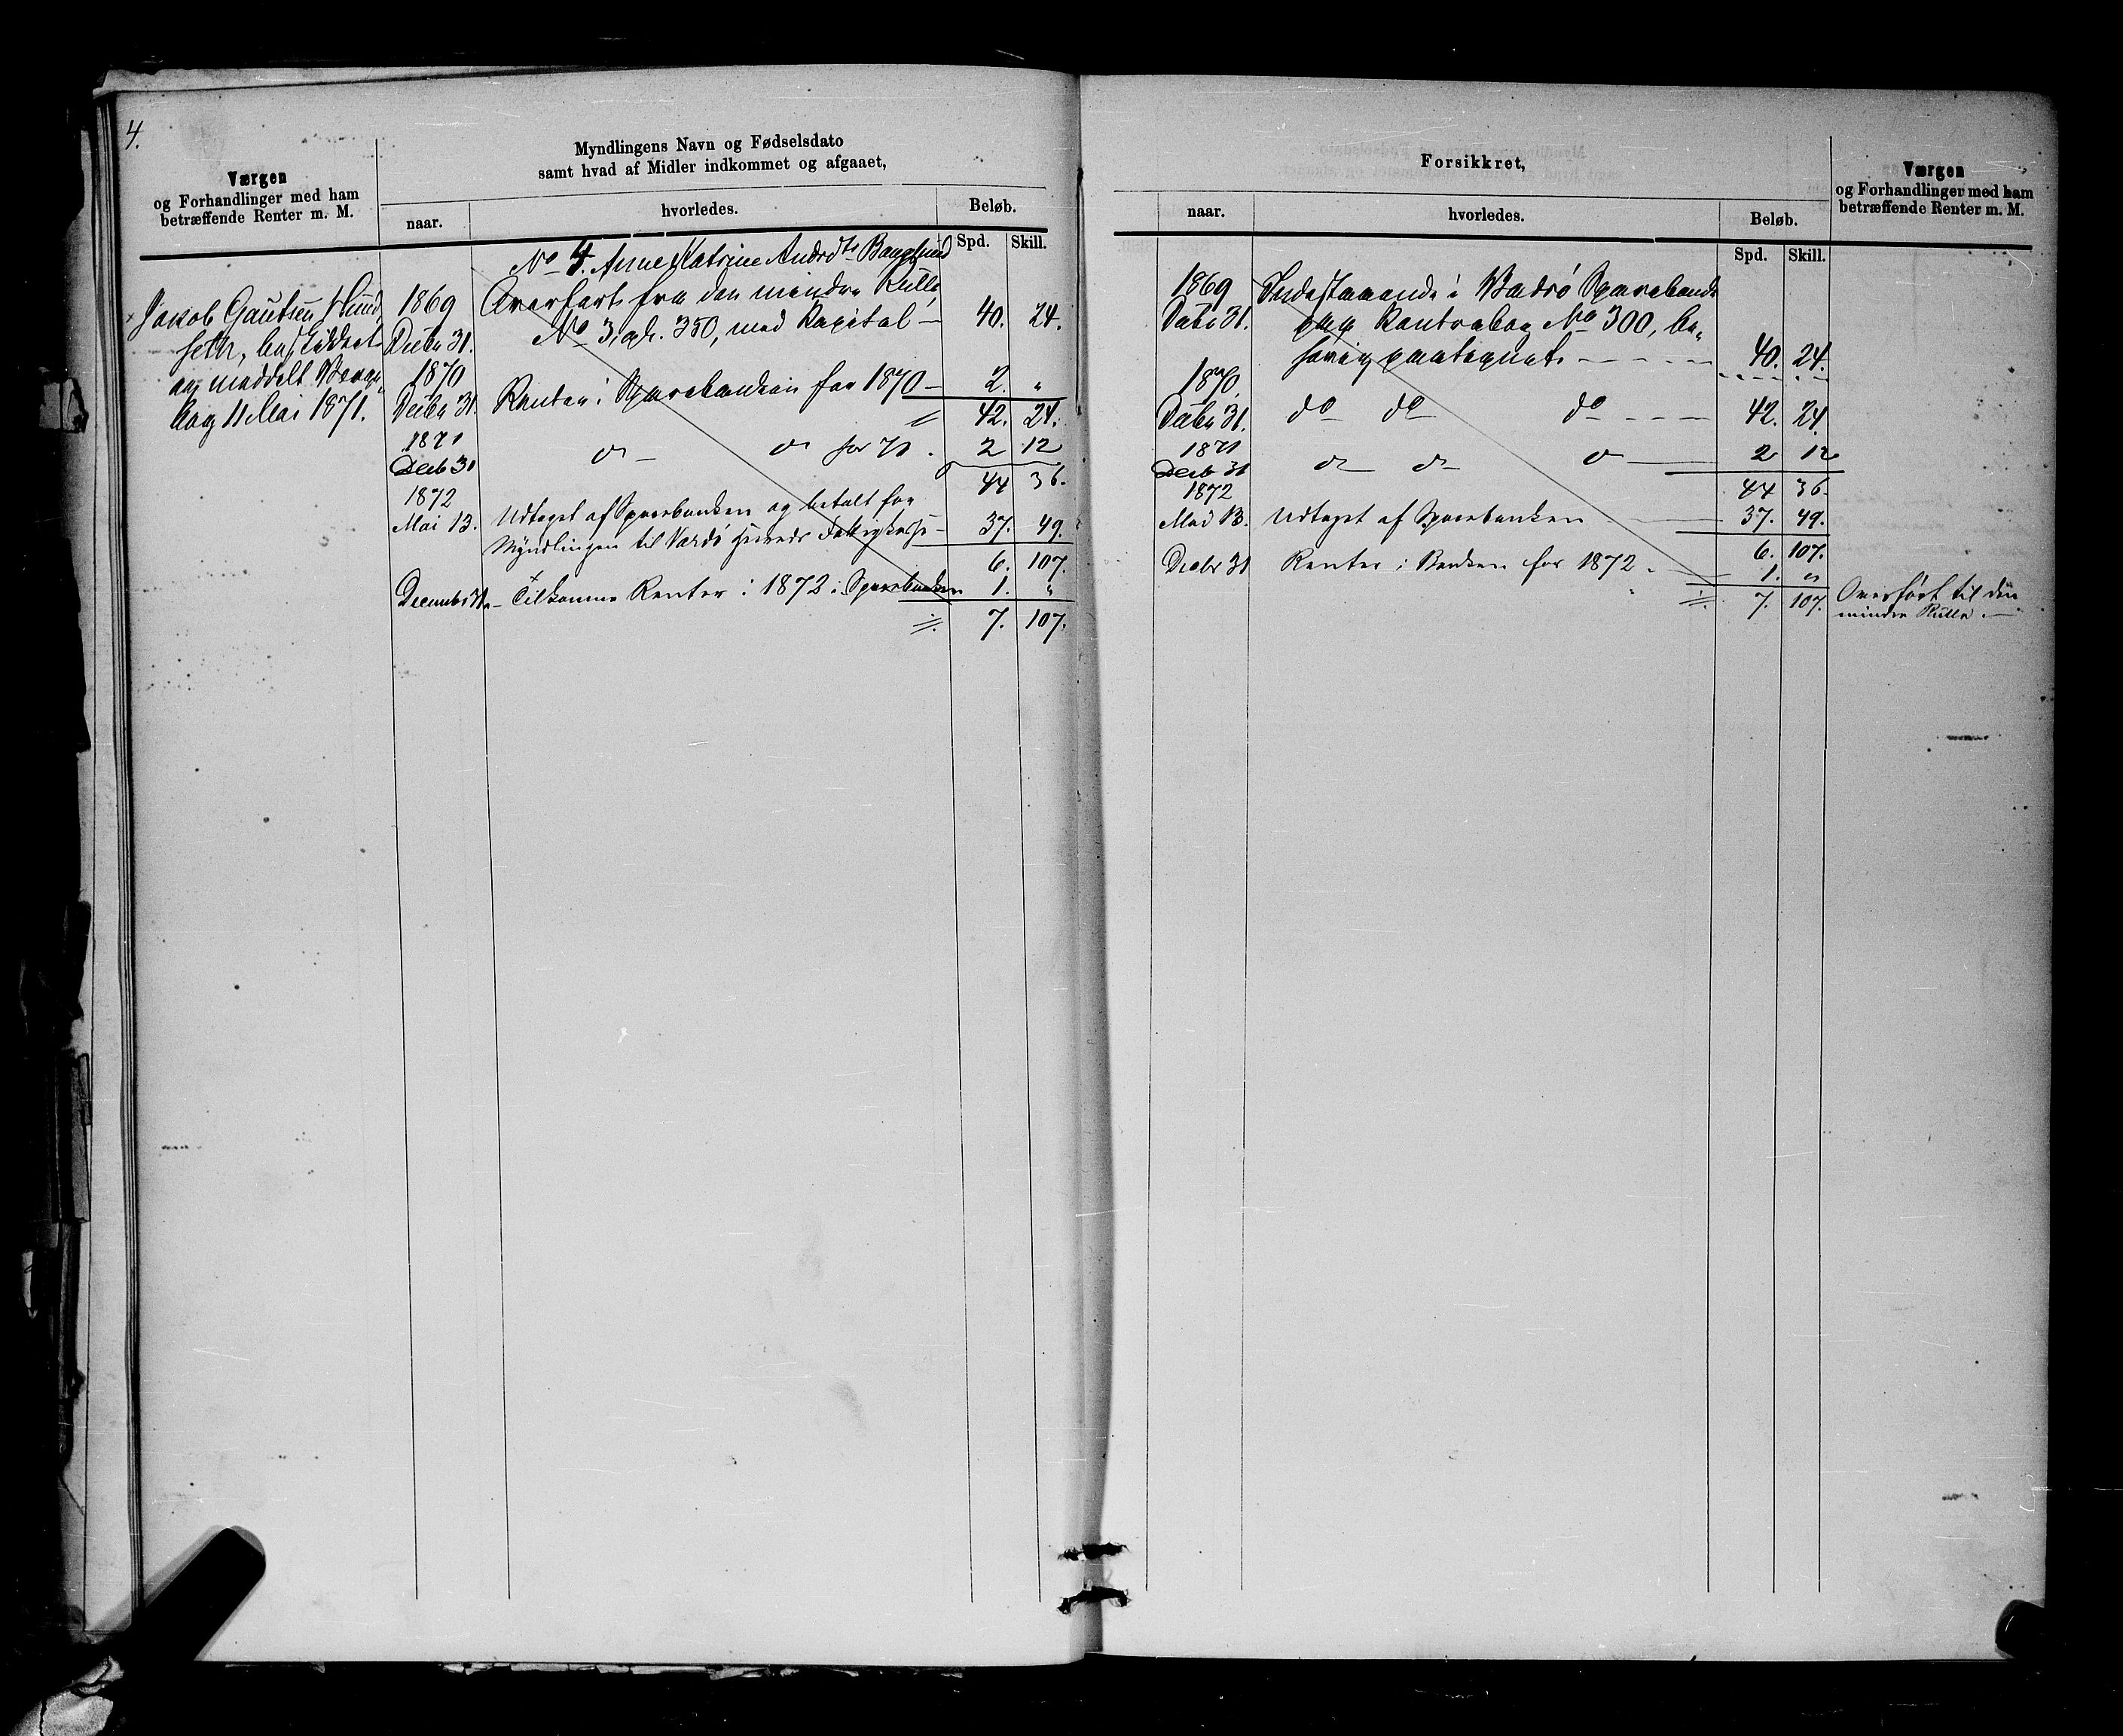 4.
Værgen
og Forhandlinger med ham
betræffende Renter m. M.
Myndlingens Navn og Fødselsdato
samt hvad af Midler indkommet og afgaaet,
naar.
hvorledes.
Beløb.
Spd. Skill.
Jakob Gautsen
beskikket
og meddelt Værge-
bog 11 Mai 1871.
No 4. Anne Katrine Andrdtr
1869 Overført fra den mindre Rulle
Decbr 31. No 3, med Kapital — 40. 24.
1870
Decbr 31. Renter i Sparebanken for 1870 — 2. "
42. 24.
1871
Decb 31 do do for 71. 2 12
44 36.
1872
Mai 13. Udtaget af Sparebanken og betalt for
Myndlingen til Vardø Fattigkasse — 37. 49.
6. 107.
December 31. Tilkomne Renter i 1872 i Sparebanken 1. "
7. 107.
Forsikkret,
naar.
hvorledes.
Beløb.
Spd. Skill.
Værgen
og Forhandlinger med ham
betræffende Renter m. M.
1869 Indestaaende i Vadsø Sparebank
Decbr 31. paa Kontrabog No 300, be-
hørig paategnet. 40. 24.
1870
Decbr 31. do do do 42. 24.
1871
Decb 31 do do do 2 12
44 36.
1872
Mai 13. Udtaget af Sparebanken 37. 49.
6. 107.
Decbr 31 Renter i Banken for 1872. 1. "
7. 107. Overført til den
mindre Rulle.